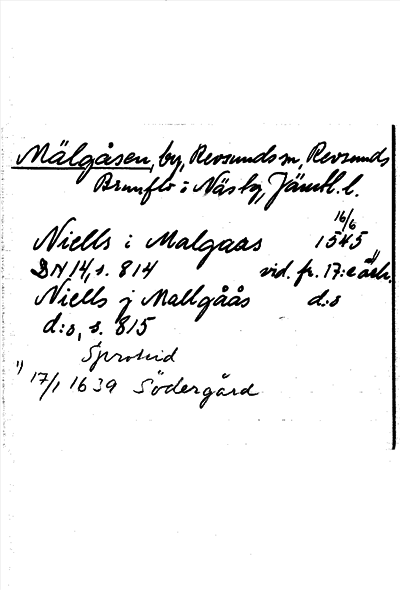 Mälgåsen, by, Revsunds sn, Revsunds
Brunflo i Näs tg, Jämtl. l.
Niells i Malgaas 16/6 1545
DN 14, s. 814 vid. fr. 17:e årh. 1)
Niells j Mallgåås d:o
d:o, s. 815
Sprotud
1) 17/1 1639 Södergård